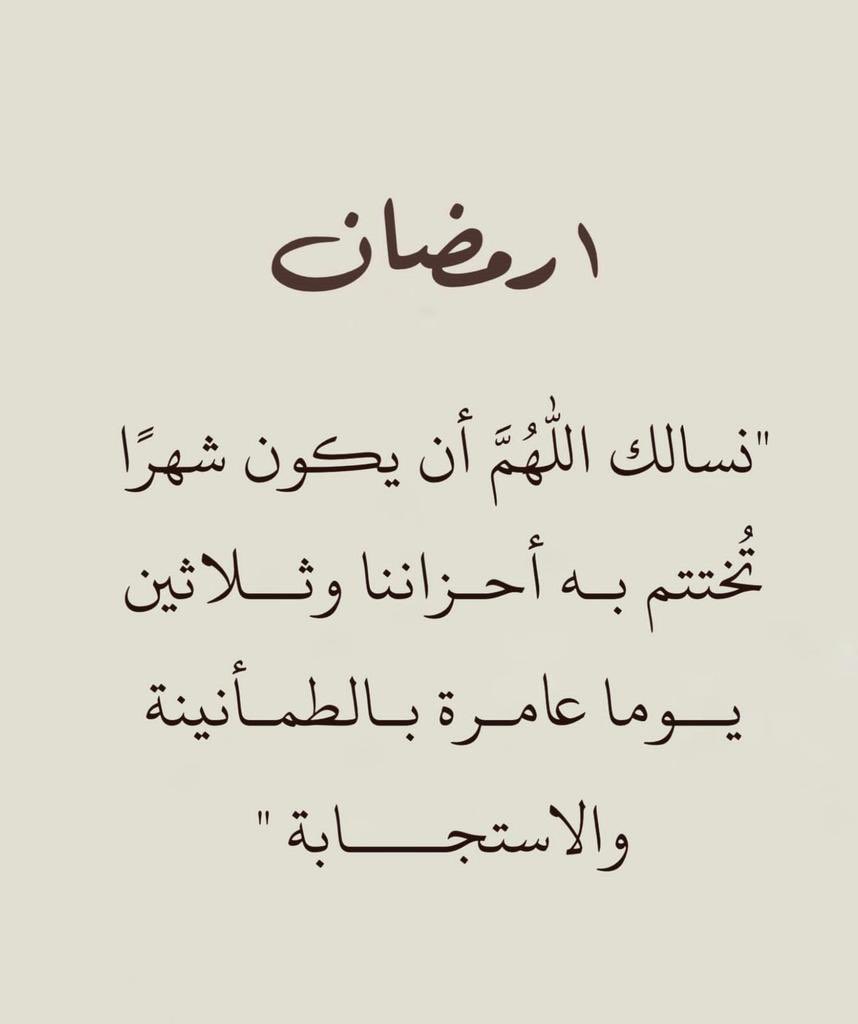 ١ رمضان
"نسالك اللّٰهُمَّ أن يكون شهرًا
تُختتم بـه أحـزاننا وثـــلاثين
يـــوما عامـرة بـالطمـأنينة
والاستجـــــابة "